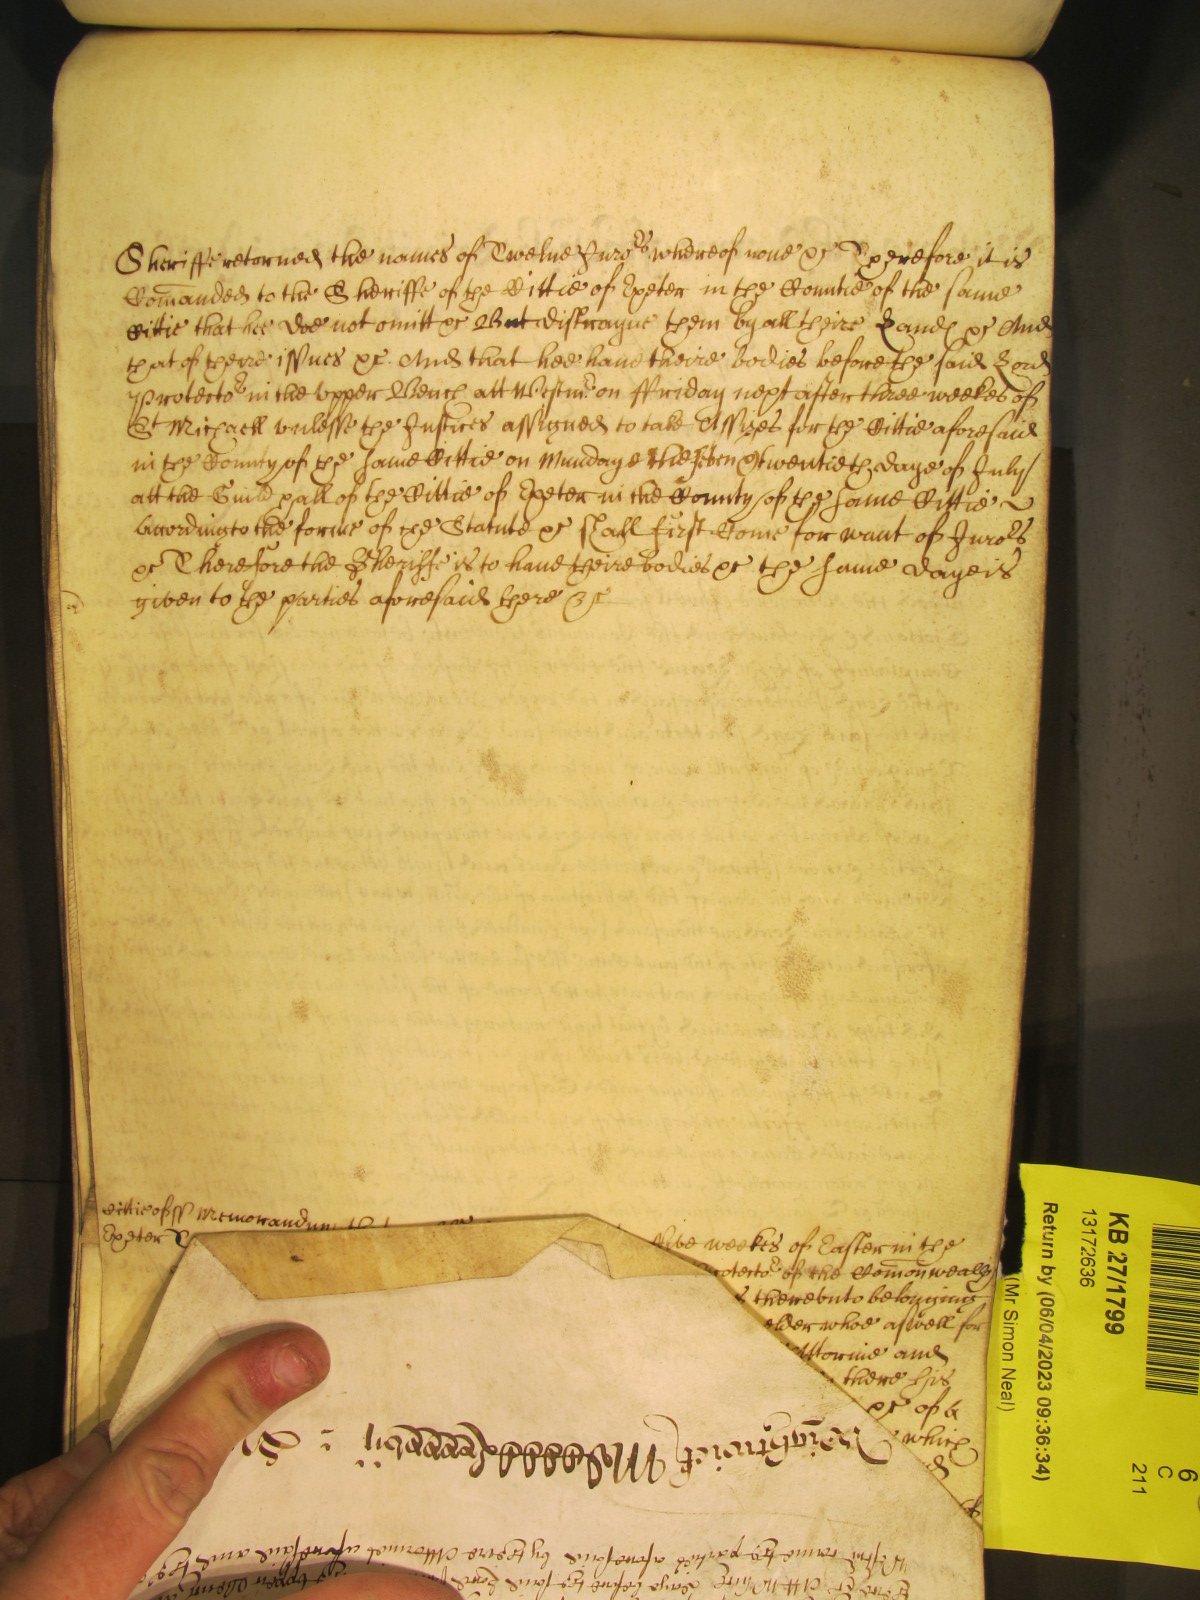 Sheriffe retorned the names of Twelve Juro:rs whereof none &c Therefore it is
Com̄anded to the Sheriffe of the Cittie of Exeter in the Countie of the same
Cittie that hee doe not omitt &c But distrayne them by all theire Lands &c And
that of theire issues &c. And that hee have theire bodies before the said Lord
Protecto:r in the vpper Bench att Westm:r on ffriday next after three weekes of
St Michaell vnlesse the Justices assigned to take Assizes for the Cittie aforesaid
in the County of the same Cittie on Munday the seven & twentieth daye of July
att the Guildhall of the Cittie of Exeter in the County of the same Cittie
According to the forme of the Statute &c shall first Come for want of Juro:rs
&c Therefore the Sheriffe is to have theire bodies &c the same daye is
given to the parties aforesaid there &c
Cittie of ss Memorandum
Exeter
five weekes of Easter in the
rotecto:r of the Com̄onwealth
therevnto belonging
elder whoe aswell for
Attornie and
there his
&c of a
which
Westm:r came the parties aforesaid by theire Attornies aforesaid and the
KB 27/1799
13172636
Return by (06/04/2023 09:36:34)
(Mr Simon Neal)
6
C
211